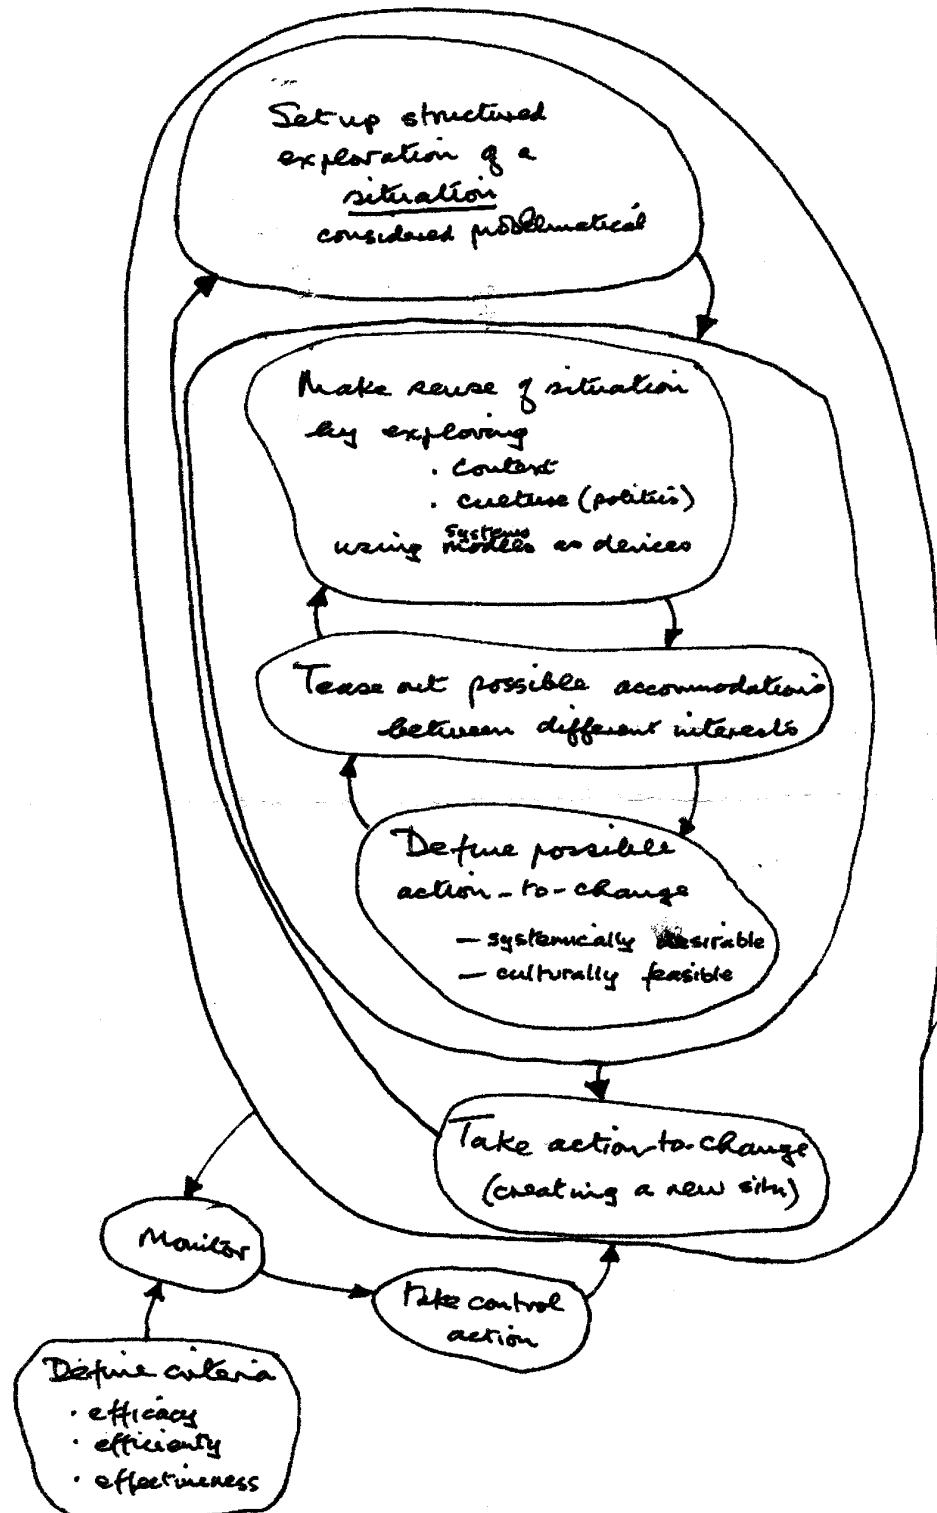 Set up structured
exploration of a
situation
considered problematical
Make sense of situation
by exploring
. context
. culture (politics)
systems
using models as devices
Tease out possible accommodations
between different interests
Define possible
action-to-change
– systemically desirable
– culturally feasible
Take action-to-change
(creating a new sitn)
Monitor
Take control
action
Define criteria
· efficacy
· efficiency
· effectiveness